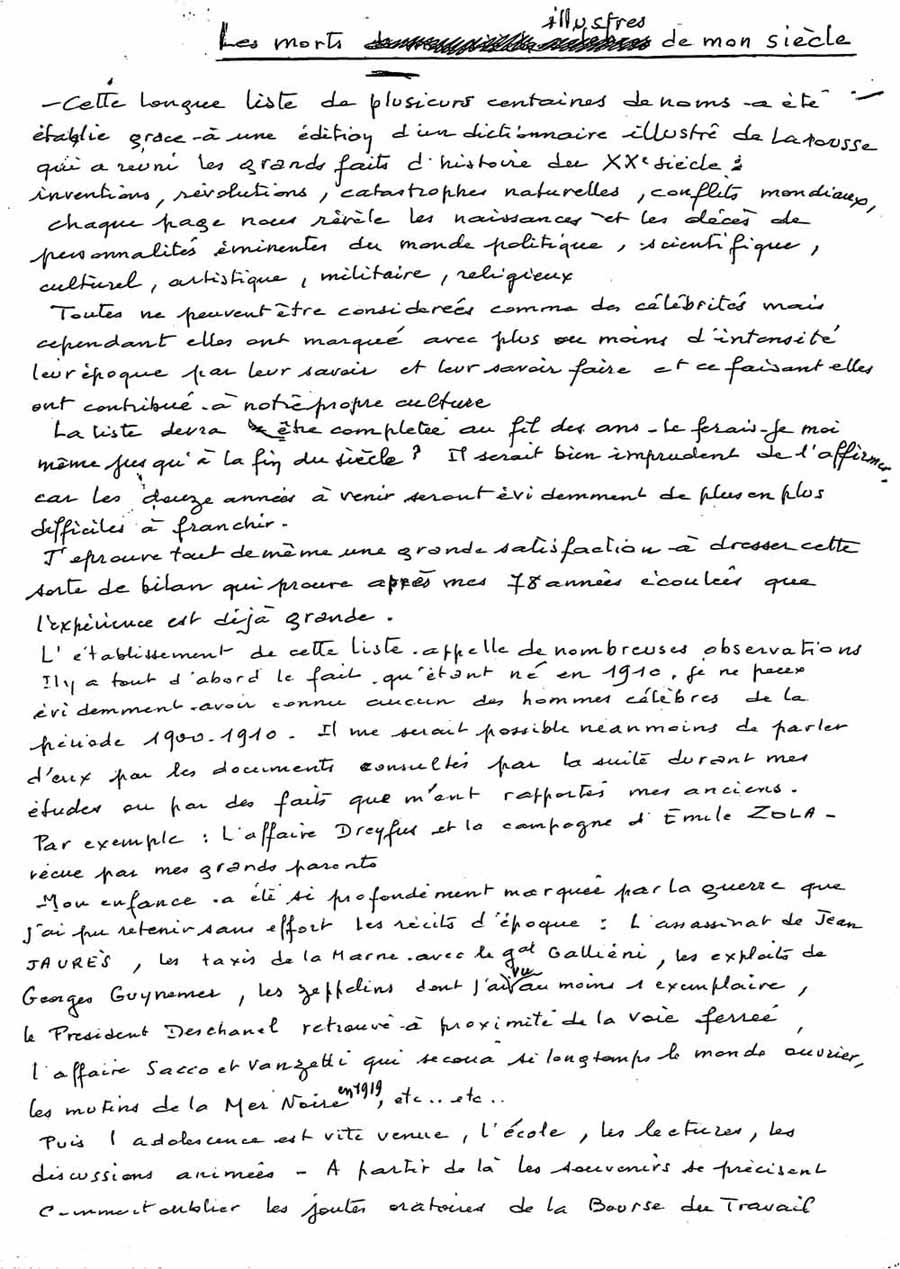 Les morts illustres de mon siècle
- Cette longue liste de plusieurs centaines de noms a été
établie grace à une édition d'un dictionnaire illustré de Larousse
qui a reuni les grands faits d'histoire du XXe siècle :
inventions, révolutions, catastrophes naturelles, conflits mondiaux,
chaque page nous révèle les naissances et les décès de
personnalités éminentes du monde politique, scientifique,
culturel, artistique, militaire, religieux
Toutes ne peuvent être considereés comme des célèbrités mais
cependant elles ont marqué avec plus ou moins d'intensité
leur époque par leur savoir et leur savoir faire et ce faisant elles
ont contribué à notre propre culture
La liste devra être completée au fil des ans - Le ferais-je moi
même jusqu'à la fin du siècle ? Il serait bien imprudent de l'affirmer.
car les douze années à venir seront évidemment de plus en plus
difficiles à franchir.
J'eprouve tout de même une grande satisfaction à dresser cette
sorte de bilan qui prouve après mes 78 années écoulées que
l'expérience est déjà grande.
L'établissement de cette liste appelle de nombreuses observations
Il y a tout d'abord le fait qu'étant né en 1910, je ne peux
évidemment avoir connu aucun des hommes célèbres de la
période 1900-1910. Il me serait possible néanmoins de parler
d'eux par les documents consultés par la suite durant mes
études ou par des faits que m'ont rapportés mes anciens.
Par exemple : L'affaire Dreyfus et la campagne d'Emile ZOLA -
vécue par mes grands parents
- Mon enfance a été si profondément marquée par la guerre que
j'ai pu retenir sans effort les récits d'époque : L'assassinat de Jean
JAURÈS, les taxis de la Marne avec le gal Galliéni, les exploits de
Georges Guynemer, les zeppelins dont j'ai vu au moins 1 exemplaire,
le President Deschanel retrouvé à proximité de la voie ferreé,
l'affaire Sacco et Vanzetti qui secoua si longtemps le monde ouvrier,
les mutins de la Mer Noire en 1919, etc.. etc..
Puis l adolescence est vite venue, l'école, les lectures, les
discussions animées - A partir de là les souvenirs se précisent
Comment oublier les joutes oratoires de la Bourse du Travail